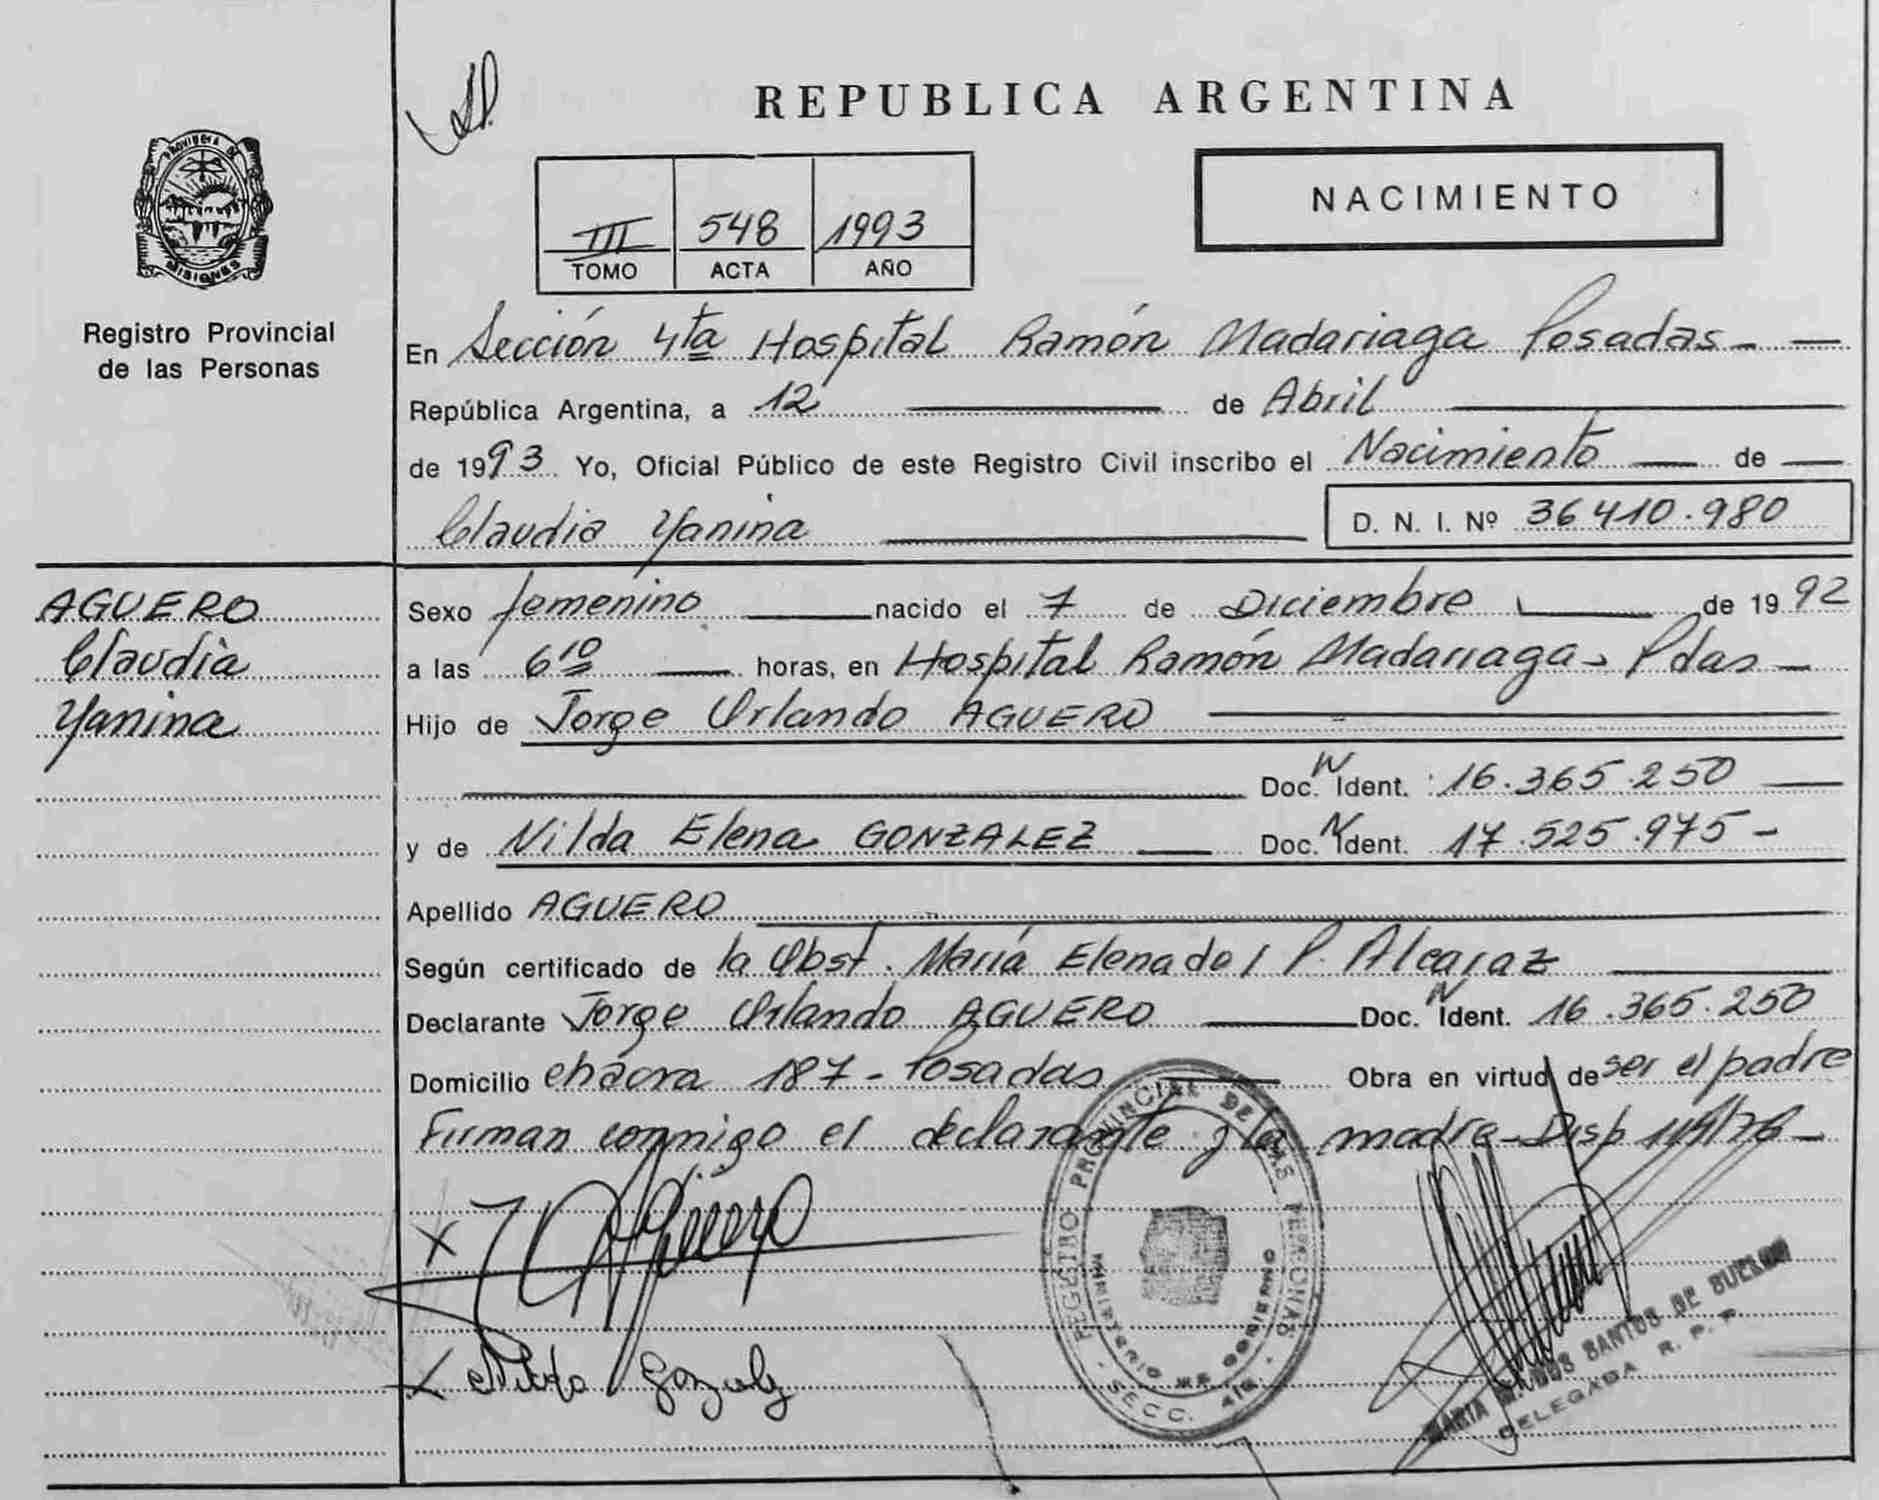 REPUBLICA ARGENTINA
PROVINCIA DE
MISIONES
Registro Provincial
de las Personas
III 548 1993
TOMO ACTA AÑO
NACIMIENTO
En Sección 4ta Hospital Ramón Madariaga Posadas - —
República Argentina, a 12 — de Abril —
de 1993 Yo, Oficial Público de este Registro Civil inscribo el Nacimiento — de —
Claudia Yanina —
D. N. I. Nº 36 410.980
AGUERO
Claudia
Yanina
Sexo femenino — nacido el 7 de Diciembre — de 19 92
a las 6 10 — horas, en Hospital Ramón Madariaga - Pdas —
Hijo de Jorge Orlando AGUERO —
— Doc. N Ident. 16.365.250 —
y de Nilda Elena GONZALEZ — Doc. N Ident. 17.525.975 -
Apellido AGUERO —
Según certificado de la Obst. María Elena del P. Alcaraz —
Declarante Jorge Orlando AGUERO — Doc. N Ident. 16.365.250
Domicilio chacra 187 - Posadas — Obra en virtud de ser el padre
Firman conmigo el declarante y la madre - Disp 114/76 —
x Agüero
x Nilda Gonzalez
REGISTRO PROVINCIAL DE LAS PERSONAS
MINISTERIO DE GOBIERNO
- SECC. 4ta. -
MARIA SANTOS DE
DELEGADA R. P. P.